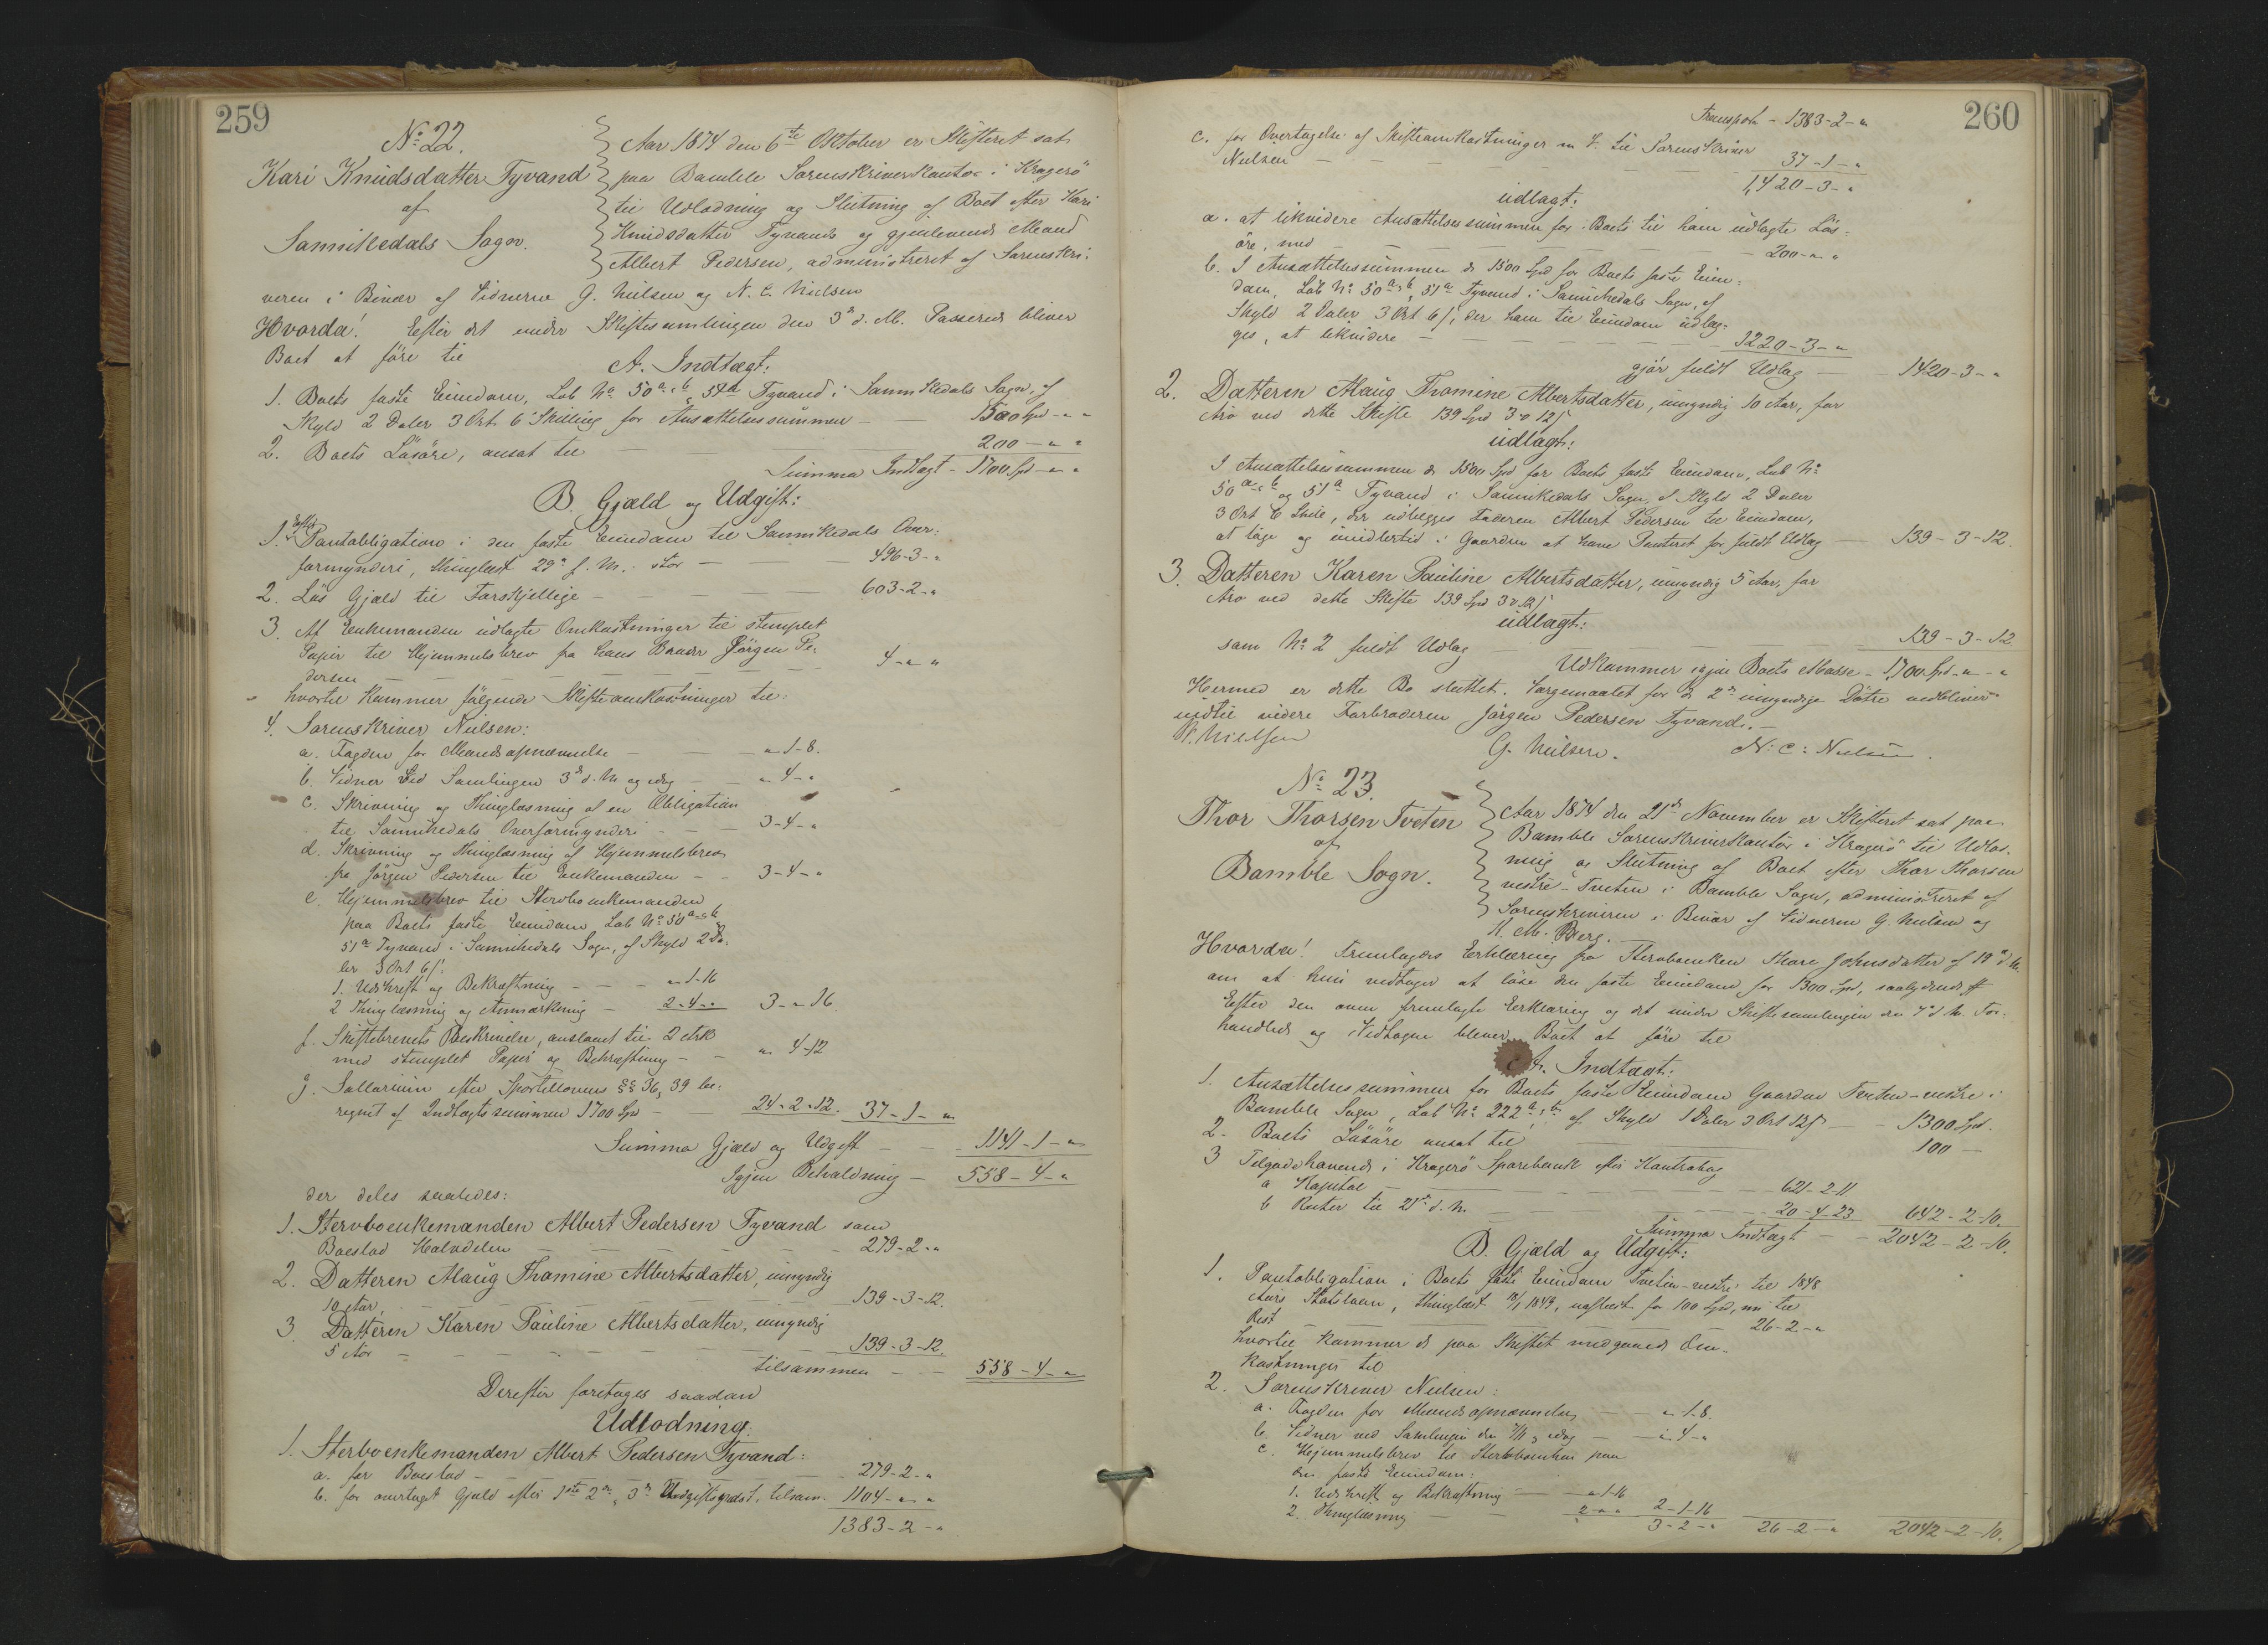 259
No 22.
Kari Knudsdatter Tyvand
af
Sannikedals Sogn.
Aar 1874 den 6te Oktober er Skifteret sat
paa Bamble Sorenskriverkontor i Kragerö
til Udlodning og Slutning af Boet efter Kari
Knudsdatter Tyvand og gjenlevende Mand
Albert Pedersen, administreret af Sorenskri-
veren i Bivær af Vidnerne G. Nielsen og N. C. Nielsen
Hvorda! Efter det under Skiftesamlingen den 3die d. M. Passerede bliver
Boet at före til
A. Indtægt:
1. Boets faste Eiendom, Löb No 50 a & b, 51a Tyvand i Sannikedals Sogn, af
Skyld 2 Daler 3 Ort 6 Skilling for Ansættelsessummen - 1500 Spd - " "
2. Boets Lösöre, ansat til - 200 - " "
Summa Indtægt - 1700 Spd - " "
B. Gjæld og Udgift:
1. Efter Pantobligation i den faste Eiendom til Sannikedals Over-
formynderi, thinglæst 29de f. M. stor - 496-3-"
2. Lös Gjæld til Forskjellige - 603-2-"
3. Af Enkemanden udlagte Omkostninger til stemplet
Papir til Hjemmelsbrev fra hans Broder Jörgen Pe-
dersen - 4-" "
hvortil kommer fölgende Skifteomkostninger til:
4. Sorenskriver Nielsen:
a. Fragden for Mandsopnævnelse - " 1-8.
b. Vidner ved Samlingen 3de d. M. og idag - " 4-"
c. Skrivning og Thinglæsning af en Obligation
til Sannikedals Overformynderi - 3-4-"
d. Skrivning og Thinglæsning af Hjemmelsbrev
fra Jörgen Pedersen til Enkemanden - 3-4-"
e. Hjemmelsbrev til Stervboenkemanden
paa Boets faste Eiendom Löb No 50 a & b,
51a Tyvand i Sannikedals Sogn, af Skyld 2 Da-
ler 3 Ort 6 ſ:
1. Udskrift og Bekræftning - " 1-16
2 Thinglæsning og Anmærkning - 2-4-" 3-"-16.
f. Skiftebrevets Beskrivelse, anslaaet til 2 Ark
med stemplet Papir og Bekræftning - " 4-12
g. Sallarium efter Sportellovens §§ 36, 39 be-
regnet af Indtægtssummen 1700 Spd - 24-2-12. 37-1-"
Summa Gjæld og Udgift - 1141-1-"
Igjen Beholdning - 558-4-"
der deles saaledes:
1. Stervboenkemanden Albert Pedersen Tyvand som
Boeslod Halvdelen - 279-2-"
2. Datteren Maug Thomine Albertsdatter, umyndig
10 Aar, - 139-3-12.
3. Datteren Karen Pauline Albertsdatter, umyndig
5 Aar - 139-3-12.
tilsammen - 558-4-"
Derefter foretages saadan
Udlodning.
1. Sterboenkemanden Albert Pedersen Tyvand:
a. for Boeslod - 279-2-"
b. for overtaget Gjæld efter 1ste 2den, 3die Udgiftspost, tilsam. 1104-" "
1383-2-"
260
Transport - 1383-2-"
c. for Overtagelse af Skifteomkostninger m. V. til Sorenskriver
Nielsen - 37-1-"
1,420-3-"
udlagt:
a. at likvidere Ansættelsessummen for Boets til ham udlagte Lös-
öre, med - 200-" "
b. I Ansættelsessummen de 1500 Spd for Boets faste Eien-
dom, Löb No 50 a & b, 51a Tyvand i Sannikedals Sogn, af
Skyld 2 Daler 3 Ort 6 ſ, der ham til Eiendom udlæg-
ges, at likvidere - 1220-3-"
gjör fuldt Udlæg - 1420-3-"
2. Datteren Maug Thomine Albertsdatter, umyndig 10 Aar, for
Arv ved dette Skifte 139 Spd 3 v 12 ſ
udlagt:
I Ansættelsessummen de 1500 Spd for Boets faste Eiendom, Löb No
50 a & b og 51a Tyvand i Sannikedals Sogn, af Skyld 2 Daler
3 Ort 6 Skill, der udlægges Faderen Albert Pedersen til Eiendom,
at söge og imidlertid i Gaarden at have Panteret for fuldt Udlæg - 139-3-12.
3. Datteren Karen Pauline Albertsdatter, umyndig 5 Aar, for
Arv ved dette Skifte 139 Spd 3 v 12 ſ
udlagt:
som No 2 fuldt Udlæg - 139-3-12
Udkommer igjen Boets Masse - 1,700 Spd - " - "
Hermed er dette Bo sluttet. Værgemaalet for de 2de umyndige Dötre vedbliver
indtil videre Farbroderen Jörgen Pedersen Tyvand. -
Nielsen
G. Nielsen.
N: C: Nielsen.
No 23.
Thor Thorsen Tveten
af
Bamble Sogn.
Aar 1874 den 21de November er Skifteret sat paa
Bamble Sorenskriverkontor i Kragerö til Udlod-
ning og Slutning af Boet efter Thor Thorsen
vestre-Tveten i Bamble Sogn, administreret af
Sorenskriveren i Bivær af Vidnerne G. Nielsen og
M. Berg.
Hvorda! Fremlagdes Erklæring fra Stervboenken Maren Johnsdatter af 10de d. M.
om at hun vedtager at löse den faste Eiendom for 1300 Spd, saalydende
Efter den oven fremlagte Erklæring og det under Skiftesamlingen den 7de d. M. For-
handlede og Vedtagne bliver Boet at före til
A. Indtægt:
1. Ansættelsessummen for Boets faste Eiendom Gaarden Tveten-vestre i
Bamble Sogn, Löb No 222 a & b af Skyld 1 Daler 3 Ort 12 ſ - 1300 Spd.
2. Boets Lösöre ansat til - 100 -
3 Tilgodehavende i Kragerö Sparebank efter Kontrabog
a Kapital - 621-2-11
b Renter til 21de d. M. - 20-4-23 642-2-10.
Summa Indtægt - 2042-2-10.
B. Gjæld og Udgift:
1. Pantobligation i Boets faste Eiendom Tveten-vestre til 1848
Aars Statslaan, thinglæst 13/1 1849, udstedt for 100 Spd, nu til
Rest - 26-2-"
hvortil kommer de paa Skiftet medgaaede Om-
kostninger til
2. Sorenskriver Nielsen:
a. Fragden for Mandsopnævnelse - " 1-8.
b. Vidner ved Samlingen den 7/11 og idag - " 4-"
c. Hjemmelsbrev til Stervboenken paa
den faste Eiendom:
1. Udskrift og Bekræftning - " 1-16
2. Thinglæsning - 2-" " 2-1-16
3-2-" 26-2-" 2042-2-10.